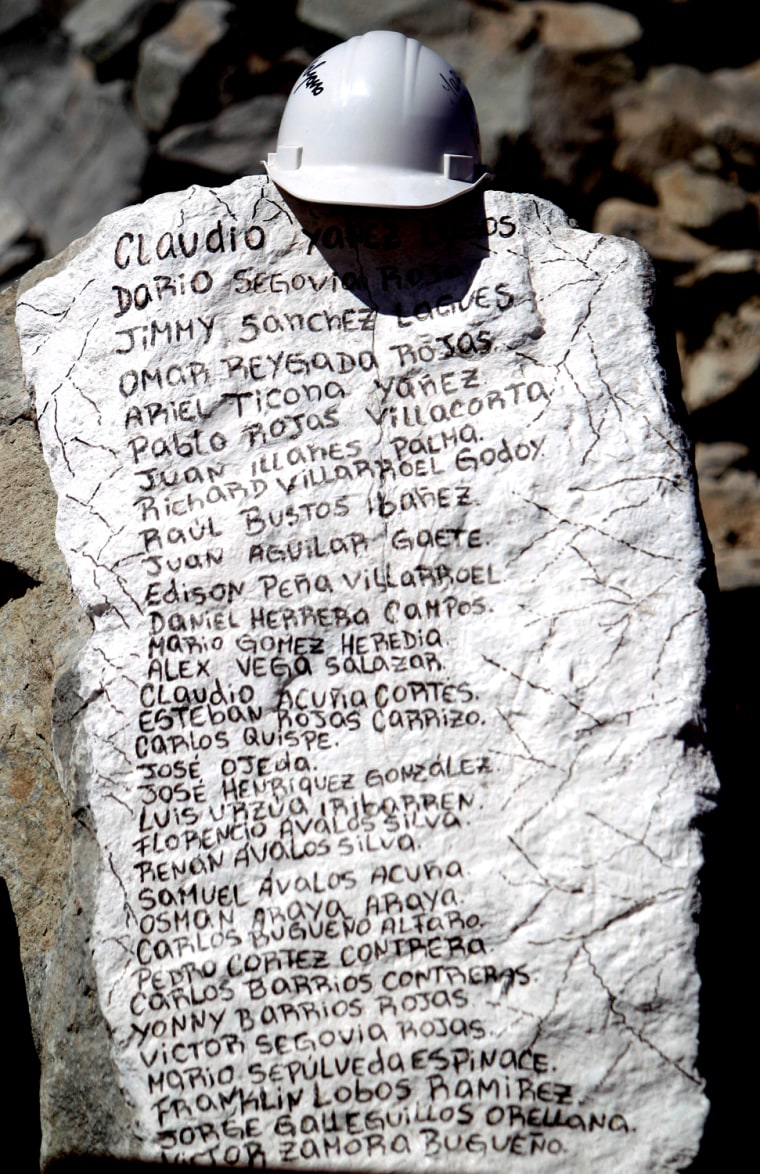 CLAUDIO YAÑEZ LAGOS
DARIO SEGOVIA ROJAS
JIMMY SANCHEZ LAGUES
OMAR REYGADA ROJAS.
ARIEL TICONA YAÑEZ
PABLO ROJAS VILLACORTA
JUAN ILLANES PALMA.
RICHARD VILLARROEL GODOY.
RAÚL BUSTOS IBAÑEZ.
JUAN AGUILAR GAETE.
EDISON PEÑA VILLARROEL.
DANIEL HERRERA CAMPOS.
MARIO GOMEZ HEREDIA.
ALEX VEGA SALAZAR
CLAUDIO ACUÑA CORTES.
ESTEBAN ROJAS CARRIZO.
CARLOS QUISPE.
JOSÉ OJEDA.
JOSÉ HENRÍQUEZ GONZÁLEZ.
LUIS URZÚA IRIBARREN.
FLORENCIO ÁVALOS SILVA.
RENÁN ÁVALOS SILVA.
SAMUEL ÁVALOS ACUÑA.
OSMAN ARAYA ARAYA.
CARLOS BUGUEÑO ALFARO.
PEDRO CORTEZ CONTRERA.
CARLOS BARRIOS CONTRERAS.
YONNY BARRIOS ROJAS
VICTOR SEGOVIA ROJAS.
MARIO SEPÚLVEDA ESPINACE.
FRANKLIN LOBOS RAMIREZ.
JORGE GALLEGUILLOS ORELLANA.
VICTOR ZAMORA BUGUEÑO.